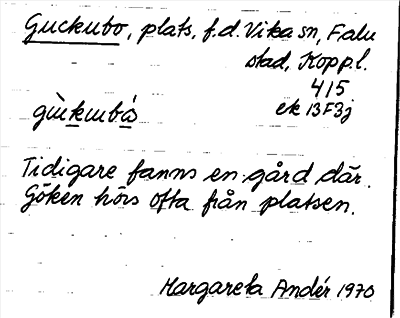 Guckubo, plats, f.d. Vika sn, Falu
stad, Koppl.
415
ek 13F3j
gùkubås
Tidigare fanns en gård där.
Göken hörs ofta från platsen.
Margareta Andér 1970